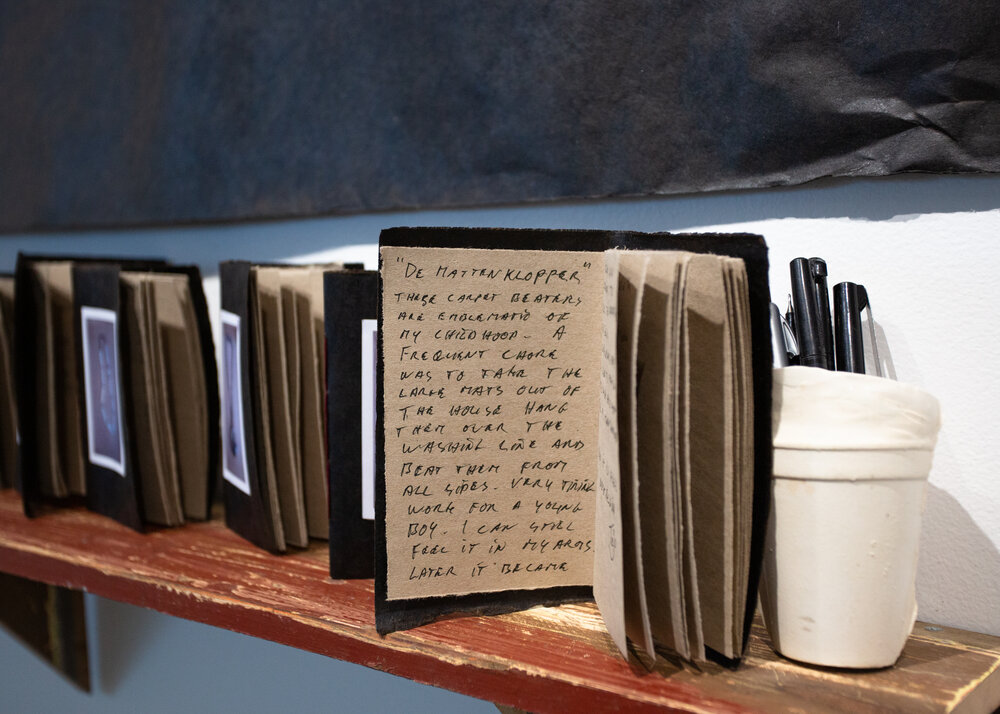 "DE MATTENKLOPPER"
THESE CARPET BEATERS
ARE EMBLEMATIC OF
MY CHILDHOOD - A
FREQUENT CHORE
WAS TO TAKE THE
LARGE MATS OUT OF
THE HOUSE HANG
THEM OVER THE
WASHING LINE AND
BEAT THEM FROM
ALL SIDES. VERY TIRING
WORK FOR A YOUNG
BOY. I CAN STILL
FEEL IT IN MY ARMS
LATER IT BECAME